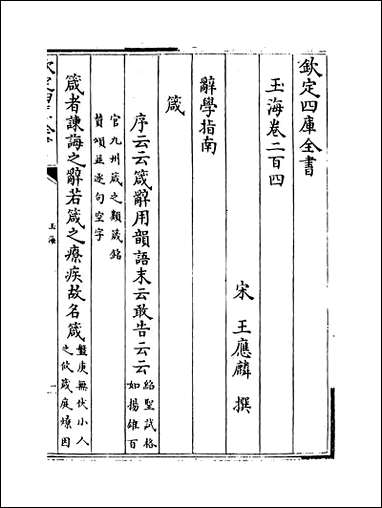 欽定四庫全書
玉海卷二百四
宋 王應麟 撰
辭學指南
箴
序云云箴辭用韻語末云敢告云云紹聖試格如揚雄百
官九州箴之類箴銘贊頌並逐句空字
箴者諫誨之辭若箴之療疾故名箴盤庚無伏小人之攸箴庭燎因
玉海
一